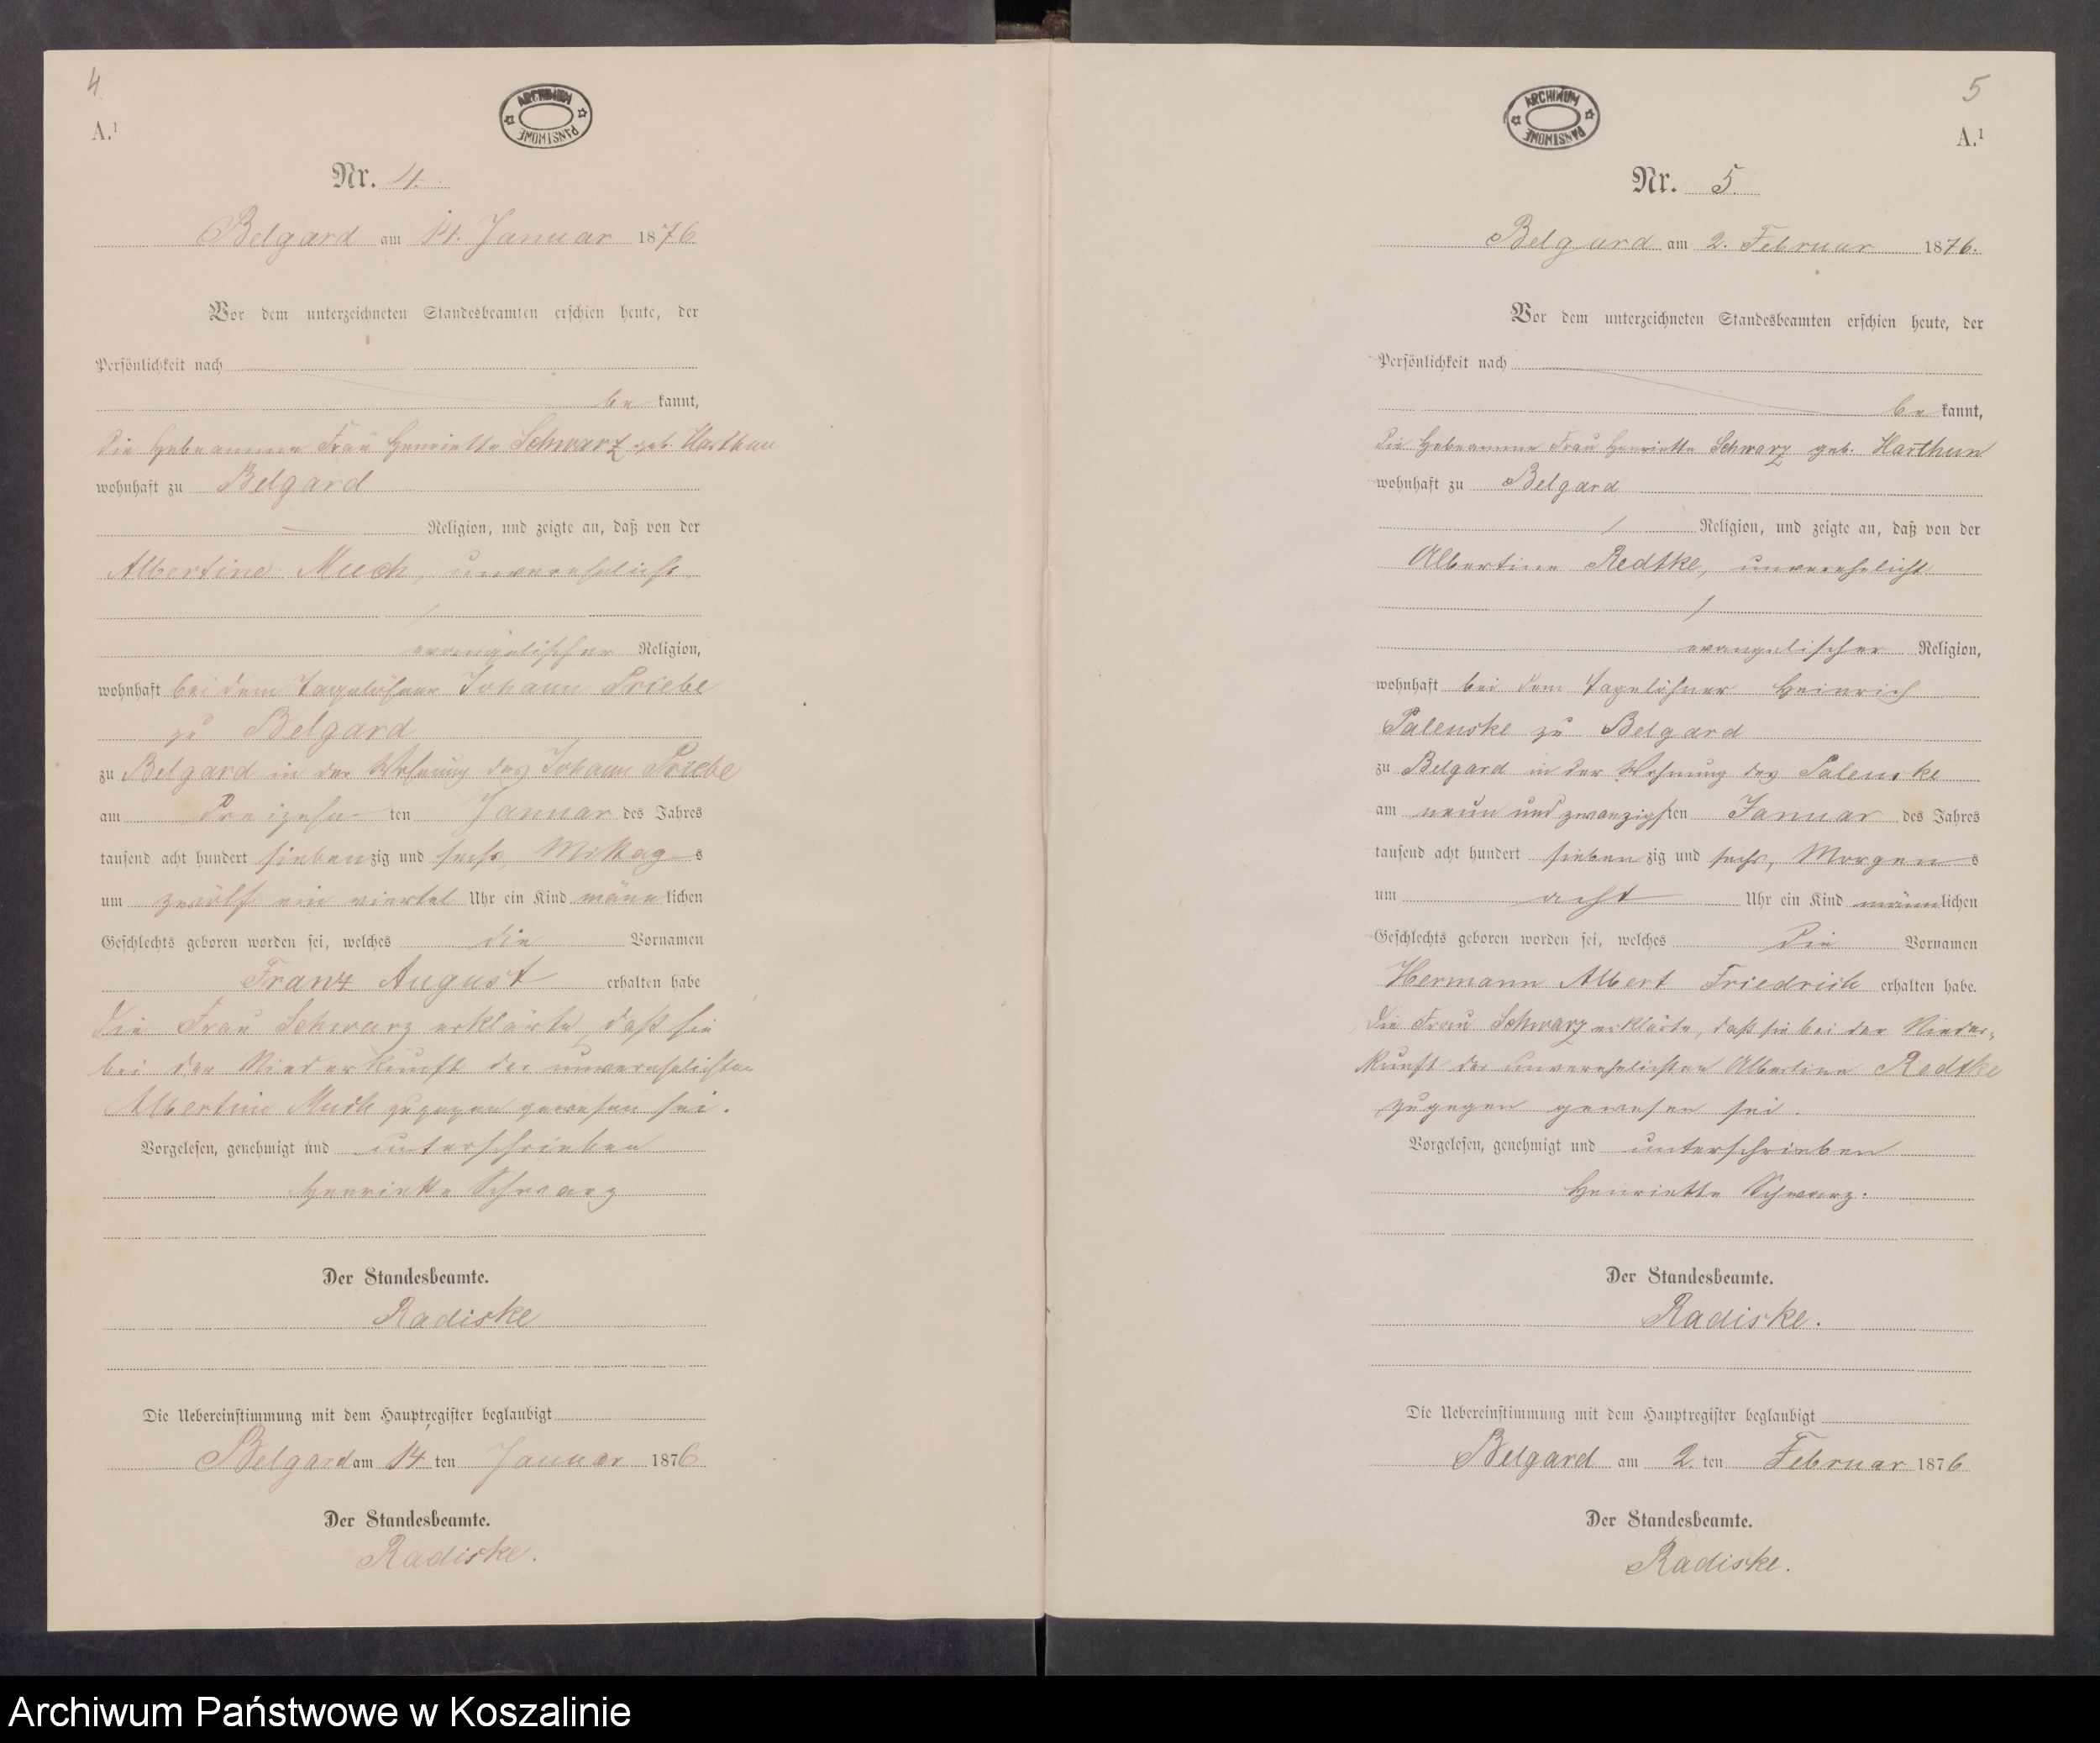 4
A.¹
ARCHIWUM PAŃSTWOWE
Nr. 4.
Belgard am 14. Januar 1876
Vor dem unterzeichneten Standesbeamten erschien heute, der
Persönlichkeit nach
be kannt,
die Hebeamme Frau Henriette Schwarz geb. Harthun
wohnhaft zu Belgard
Religion, und zeigte an, daß von der
Albertine Much, unverehelicht
evangelischer Religion,
wohnhaft bei dem Tagelöhner Johann Priebe
zu Belgard
zu Belgard in der Wohnung des Johann Priebe
am dreizehn ten Januar des Jahres
tausend acht hundert siebenzig und sechs, Mittag s
um zwölf ein viertel Uhr ein Kind männlichen
Geschlechts geboren worden sei, welches die Vornamen
Franz August erhalten habe
Die Frau Schwarz erklärte, daß sie
bei der Niederkunft der unverehelichten
Albertine Much zugegen gewesen sei.
Vorgelesen, genehmigt und unterschrieben
Henriette Schwarz
Der Standesbeamte.
Radiske
Die Uebereinstimmung mit dem Hauptregister beglaubigt
Belgard am 14 ten Januar 1876
Der Standesbeamte.
Radiske.
5
A.¹
ARCHIWUM PAŃSTWOWE
Nr. 5.
Belgard am 2. Februar 1876.
Vor dem unterzeichneten Standesbeamten erschien heute, der
Persönlichkeit nach
be kannt,
die Hebeamme Frau Henriette Schwarz geb. Harthun
wohnhaft zu Belgard
Religion, und zeigte an, daß von der
Albertine Redtke, unverehelicht
evangelischer Religion,
wohnhaft bei dem Tagelöhner Heinrich
Palenske zu Belgard
zu Belgard in der Wohnung des Palenske
am neun und zwanzigsten Januar des Jahres
tausend acht hundert siebenzig und sechs, Morgen s
um acht Uhr ein Kind männlichen
Geschlechts geboren worden sei, welches die Vornamen
Hermann Albert Friedrich erhalten habe.
Die Frau Schwarz erklärte, daß sie bei der Nieder-
kunft der unverehelichten Albertine Redtke
zugegen gewesen sei.
Vorgelesen, genehmigt und unterschrieben
Henriette Schwarz.
Der Standesbeamte.
Radiske.
Die Uebereinstimmung mit dem Hauptregister beglaubigt
Belgard am 2. ten Februar 1876
Der Standesbeamte.
Radiske.
Archiwum Państwowe w Koszalinie